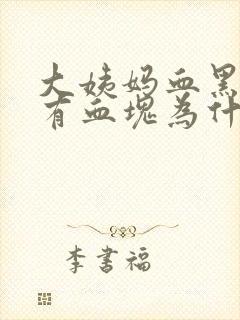 大姨妈血黑
有血块为什
李书福